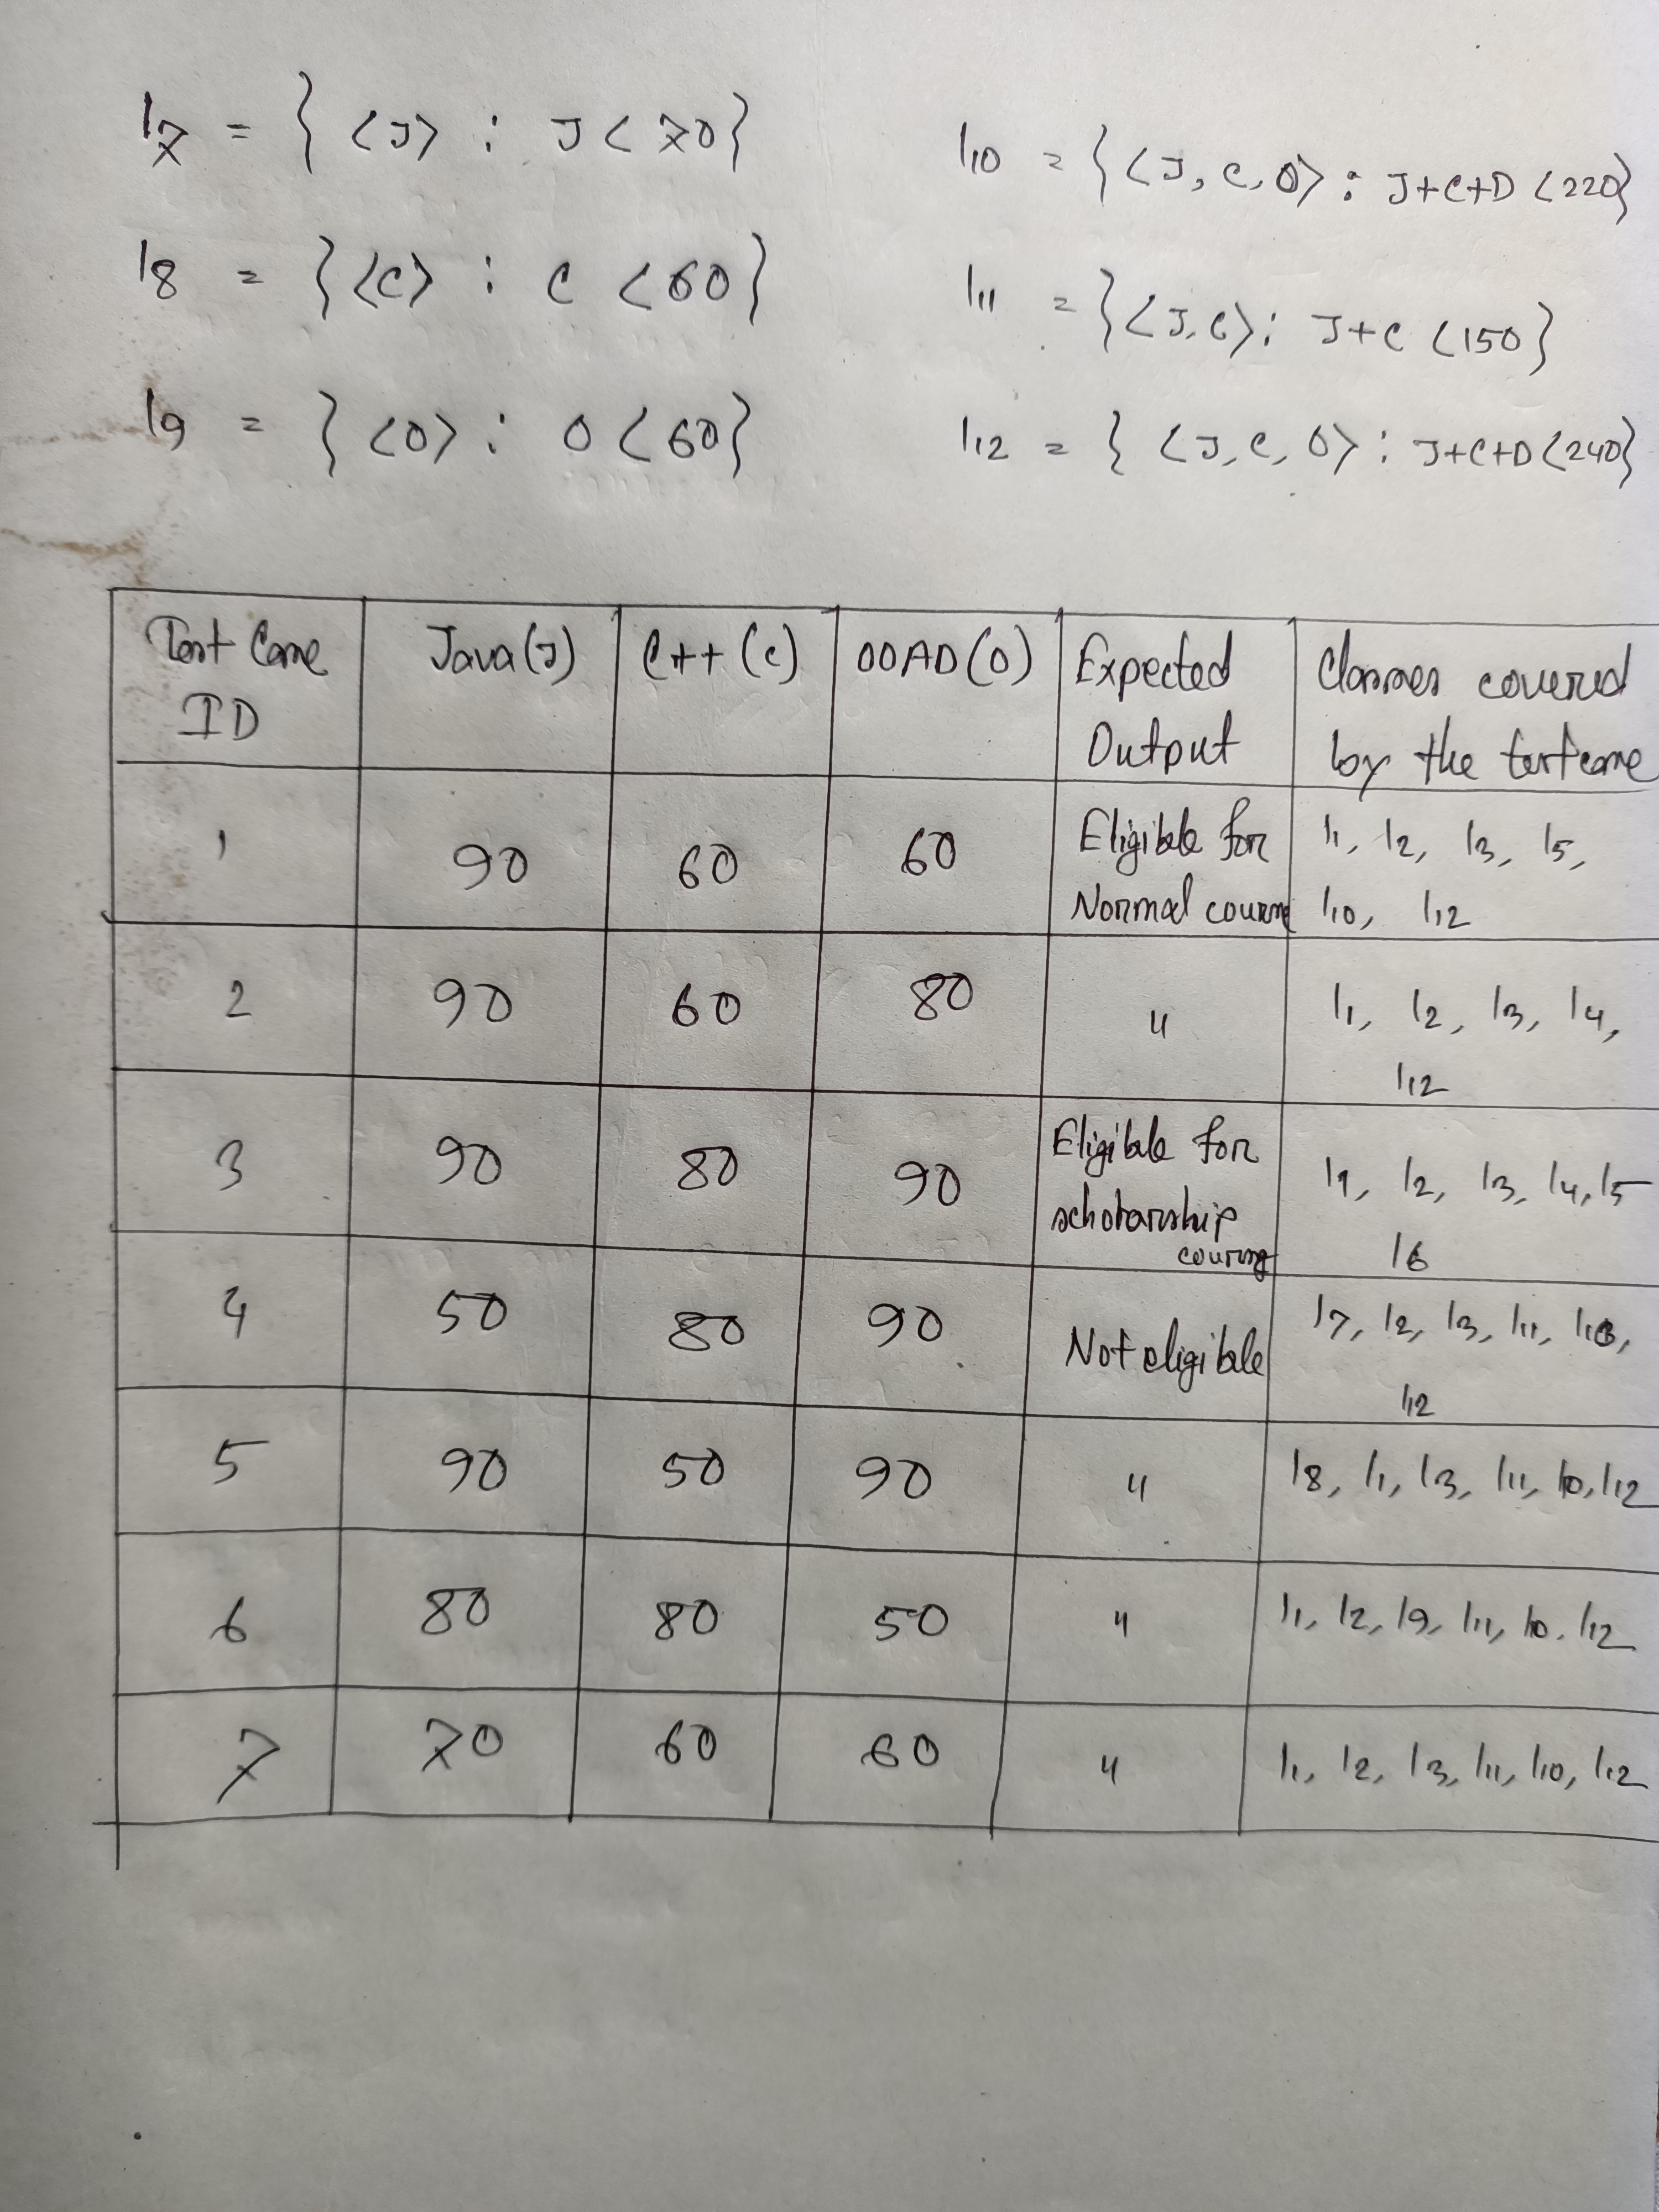 I7 = { <J> : J < 70}
I8 = { <C> : C < 60}
I9 = { <O> : O < 60}
I10 = { <J, C, O> : J+C+D < 220}
I11 = { <J, C> : J+C < 150}
I12 = { <J, C, O> : J+C+D < 240}
Test Case ID | Java (J) | C++ (C) | OOAD (O) | Expected Output | Classes covered by the testcase
1 | 90 | 60 | 60 | Eligible for Normal course | I1, I2, I3, I5, I10, I12
2 | 90 | 60 | 80 | " | I1, I2, I3, I4, I12
3 | 90 | 80 | 90 | Eligible for scholarship course | I1, I2, I3, I4, I5 I6
4 | 50 | 80 | 90 | Not eligible | I7, I2, I3, I11, I10, I12
5 | 90 | 50 | 90 | " | I8, I1, I3, I11, I10, I12
6 | 80 | 80 | 50 | " | I1, I2, I9, I11, I10. I12
7 | 70 | 60 | 60 | " | I1, I2, I3, I11, I10, I12